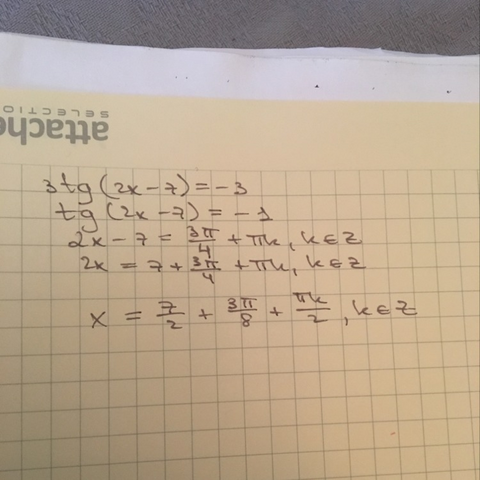 attache
SELECTIO
3tg(2x-7)=-3
tg(2x-7)=-1
2x-7=3π/4+πk, k∈Z
2x=7+3π/4+πk, k∈Z
x=7/2+3π/8+πk/2, k∈Z